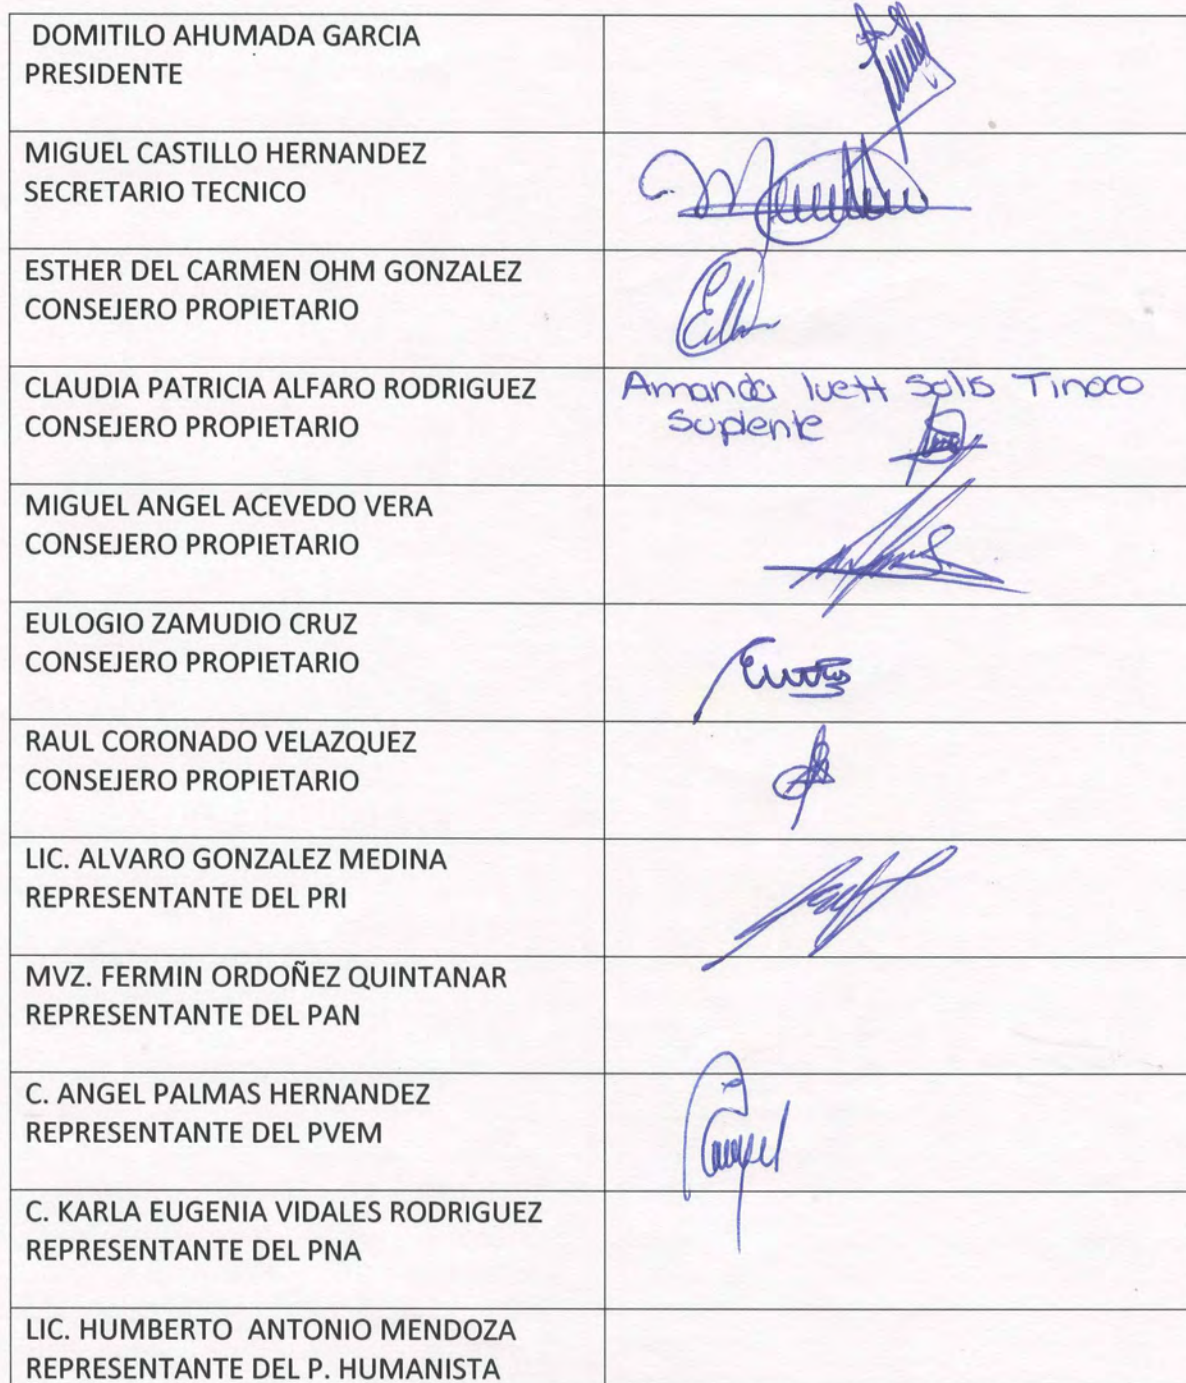 DOMITILO AHUMADA GARCIA
PRESIDENTE
MIGUEL CASTILLO HERNANDEZ
SECRETARIO TECNICO
ESTHER DEL CARMEN OHM GONZALEZ
CONSEJERO PROPIETARIO
CLAUDIA PATRICIA ALFARO RODRIGUEZ
CONSEJERO PROPIETARIO
Amanda Ivett Solis Tinoco
Suplente
MIGUEL ANGEL ACEVEDO VERA
CONSEJERO PROPIETARIO
EULOGIO ZAMUDIO CRUZ
CONSEJERO PROPIETARIO
RAUL CORONADO VELAZQUEZ
CONSEJERO PROPIETARIO
LIC. ALVARO GONZALEZ MEDINA
REPRESENTANTE DEL PRI
MVZ. FERMIN ORDOÑEZ QUINTANAR
REPRESENTANTE DEL PAN
C. ANGEL PALMAS HERNANDEZ
REPRESENTANTE DEL PVEM
C. KARLA EUGENIA VIDALES RODRIGUEZ
REPRESENTANTE DEL PNA
LIC. HUMBERTO ANTONIO MENDOZA
REPRESENTANTE DEL P. HUMANISTA